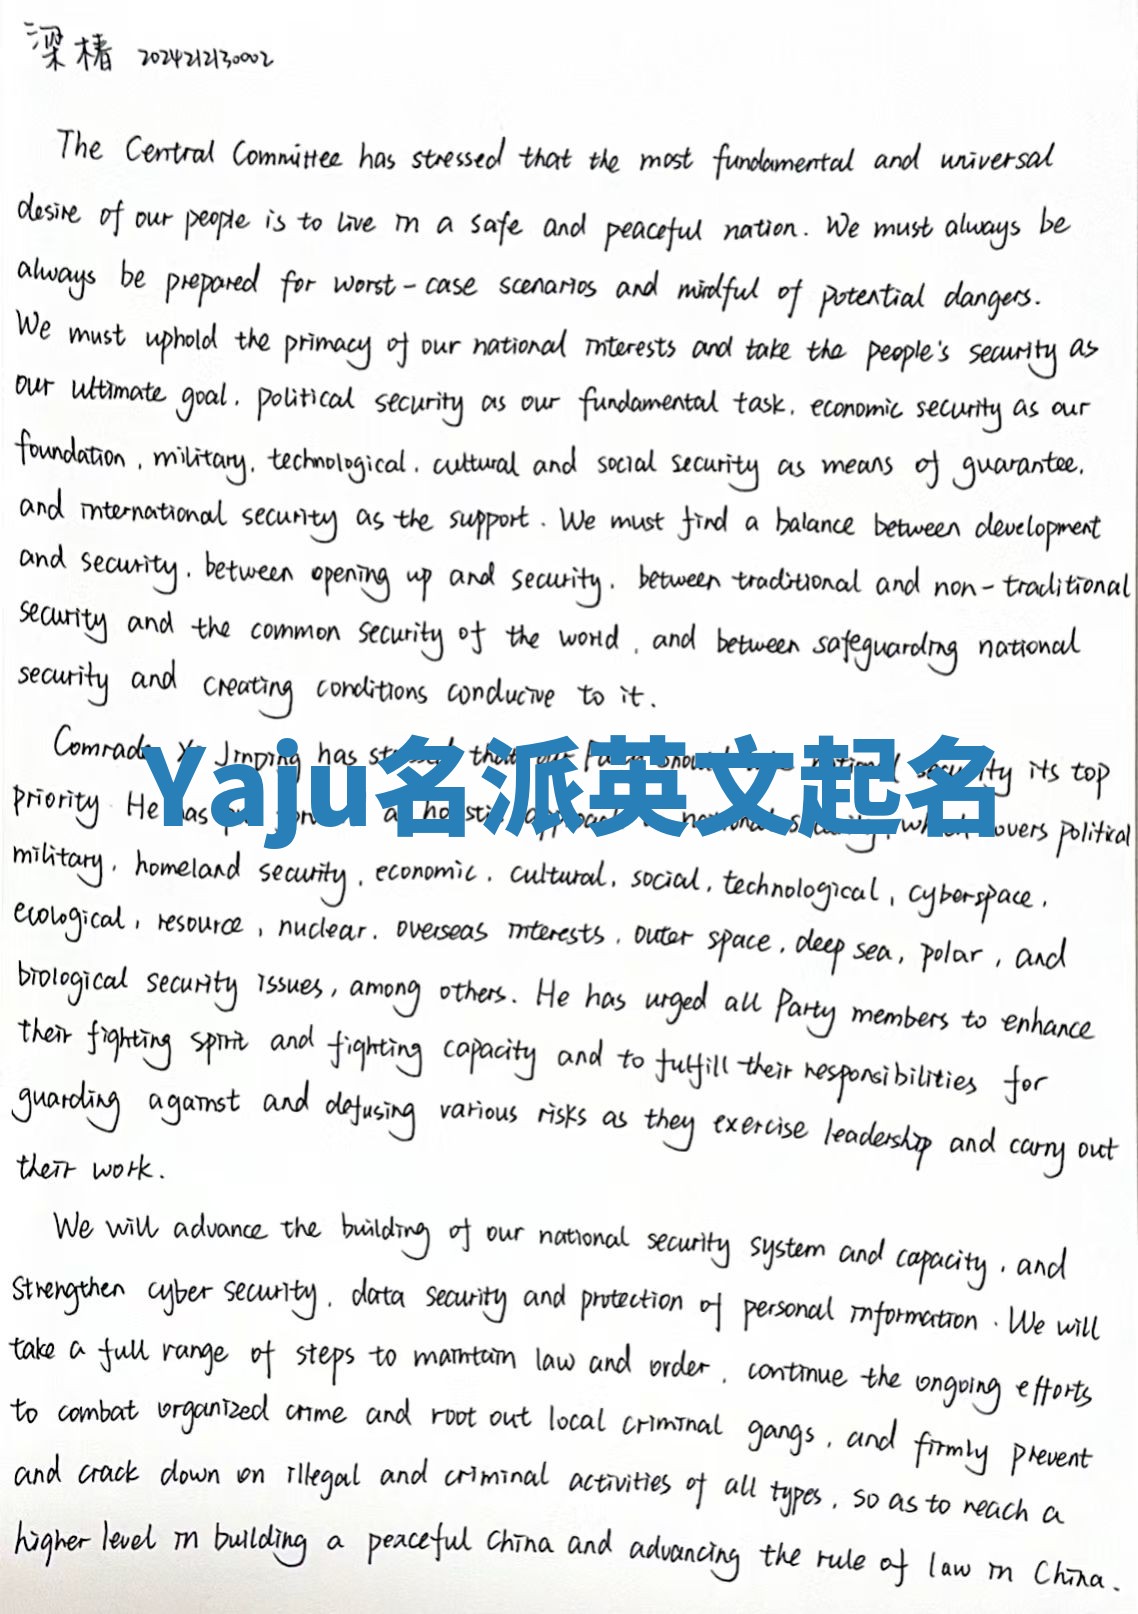 梁椿 2024212130002
The Central Committee has stressed that the most fundamental and universal
desire of our people is to live in a safe and peaceful nation. We must always be
always be prepared for worst-case scenarios and mindful of potential dangers.
We must uphold the primacy of our national interests and take the people's security as
our ultimate goal, political security as our fundamental task, economic security as our
foundation, military, technological, cultural and social security as means of guarantee,
and international security as the support. We must find a balance between development
and security, between opening up and security, between traditional and non-traditional
security and the common security of the world, and between safeguarding national
security and creating conditions conducive to it.
Comrade Xi Jinping has stressed that our Party should national security its top
Yaju名派英文起名
priority He has a holistic approach national security, which covers political
military, homeland security, economic, cultural, social, technological, cyberspace,
ecological, resource, nuclear, overseas interests, outer space, deep sea, polar, and
biological security issues, among others. He has urged all Party members to enhance
their fighting spirit and fighting capacity and to fulfill their responsibilities for
guarding against and defusing various risks as they exercise leadership and carry out
their work.
We will advance the building of our national security system and capacity, and
strengthen cyber security, data security and protection of personal information. We will
take a full range of steps to maintain law and order, continue the ongoing efforts
to combat organized crime and root out local criminal gangs, and firmly prevent
and crack down on illegal and criminal activities of all types, so as to reach a
higher level in building a peaceful China and advancing the rule of law in China.